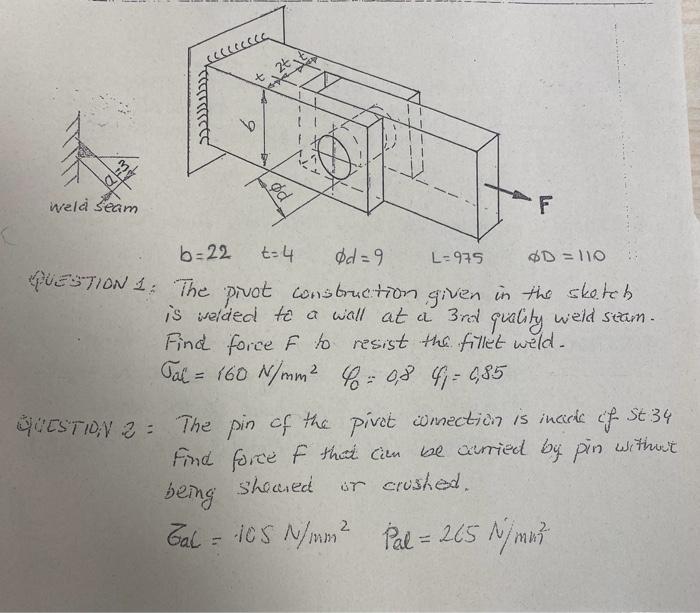 t 2t t
b
a=3
ød
F
weld seam
b=22 t=4 ød=9 L=975 øD=110
QUESTION 1: The pivot construction given in the sketch
is welded to a wall at a 3rd quality weld seam.
Find force F to resist the fillet weld.
σal = 160 N/mm² φo = 0,8 φ1 = 0,85
QUESTION 2: The pin of the pivot connection is made of St 34
Find force F that can be carried by pin without
being sheared or crushed.
τal = 105 N/mm² Pal = 265 N/mm²